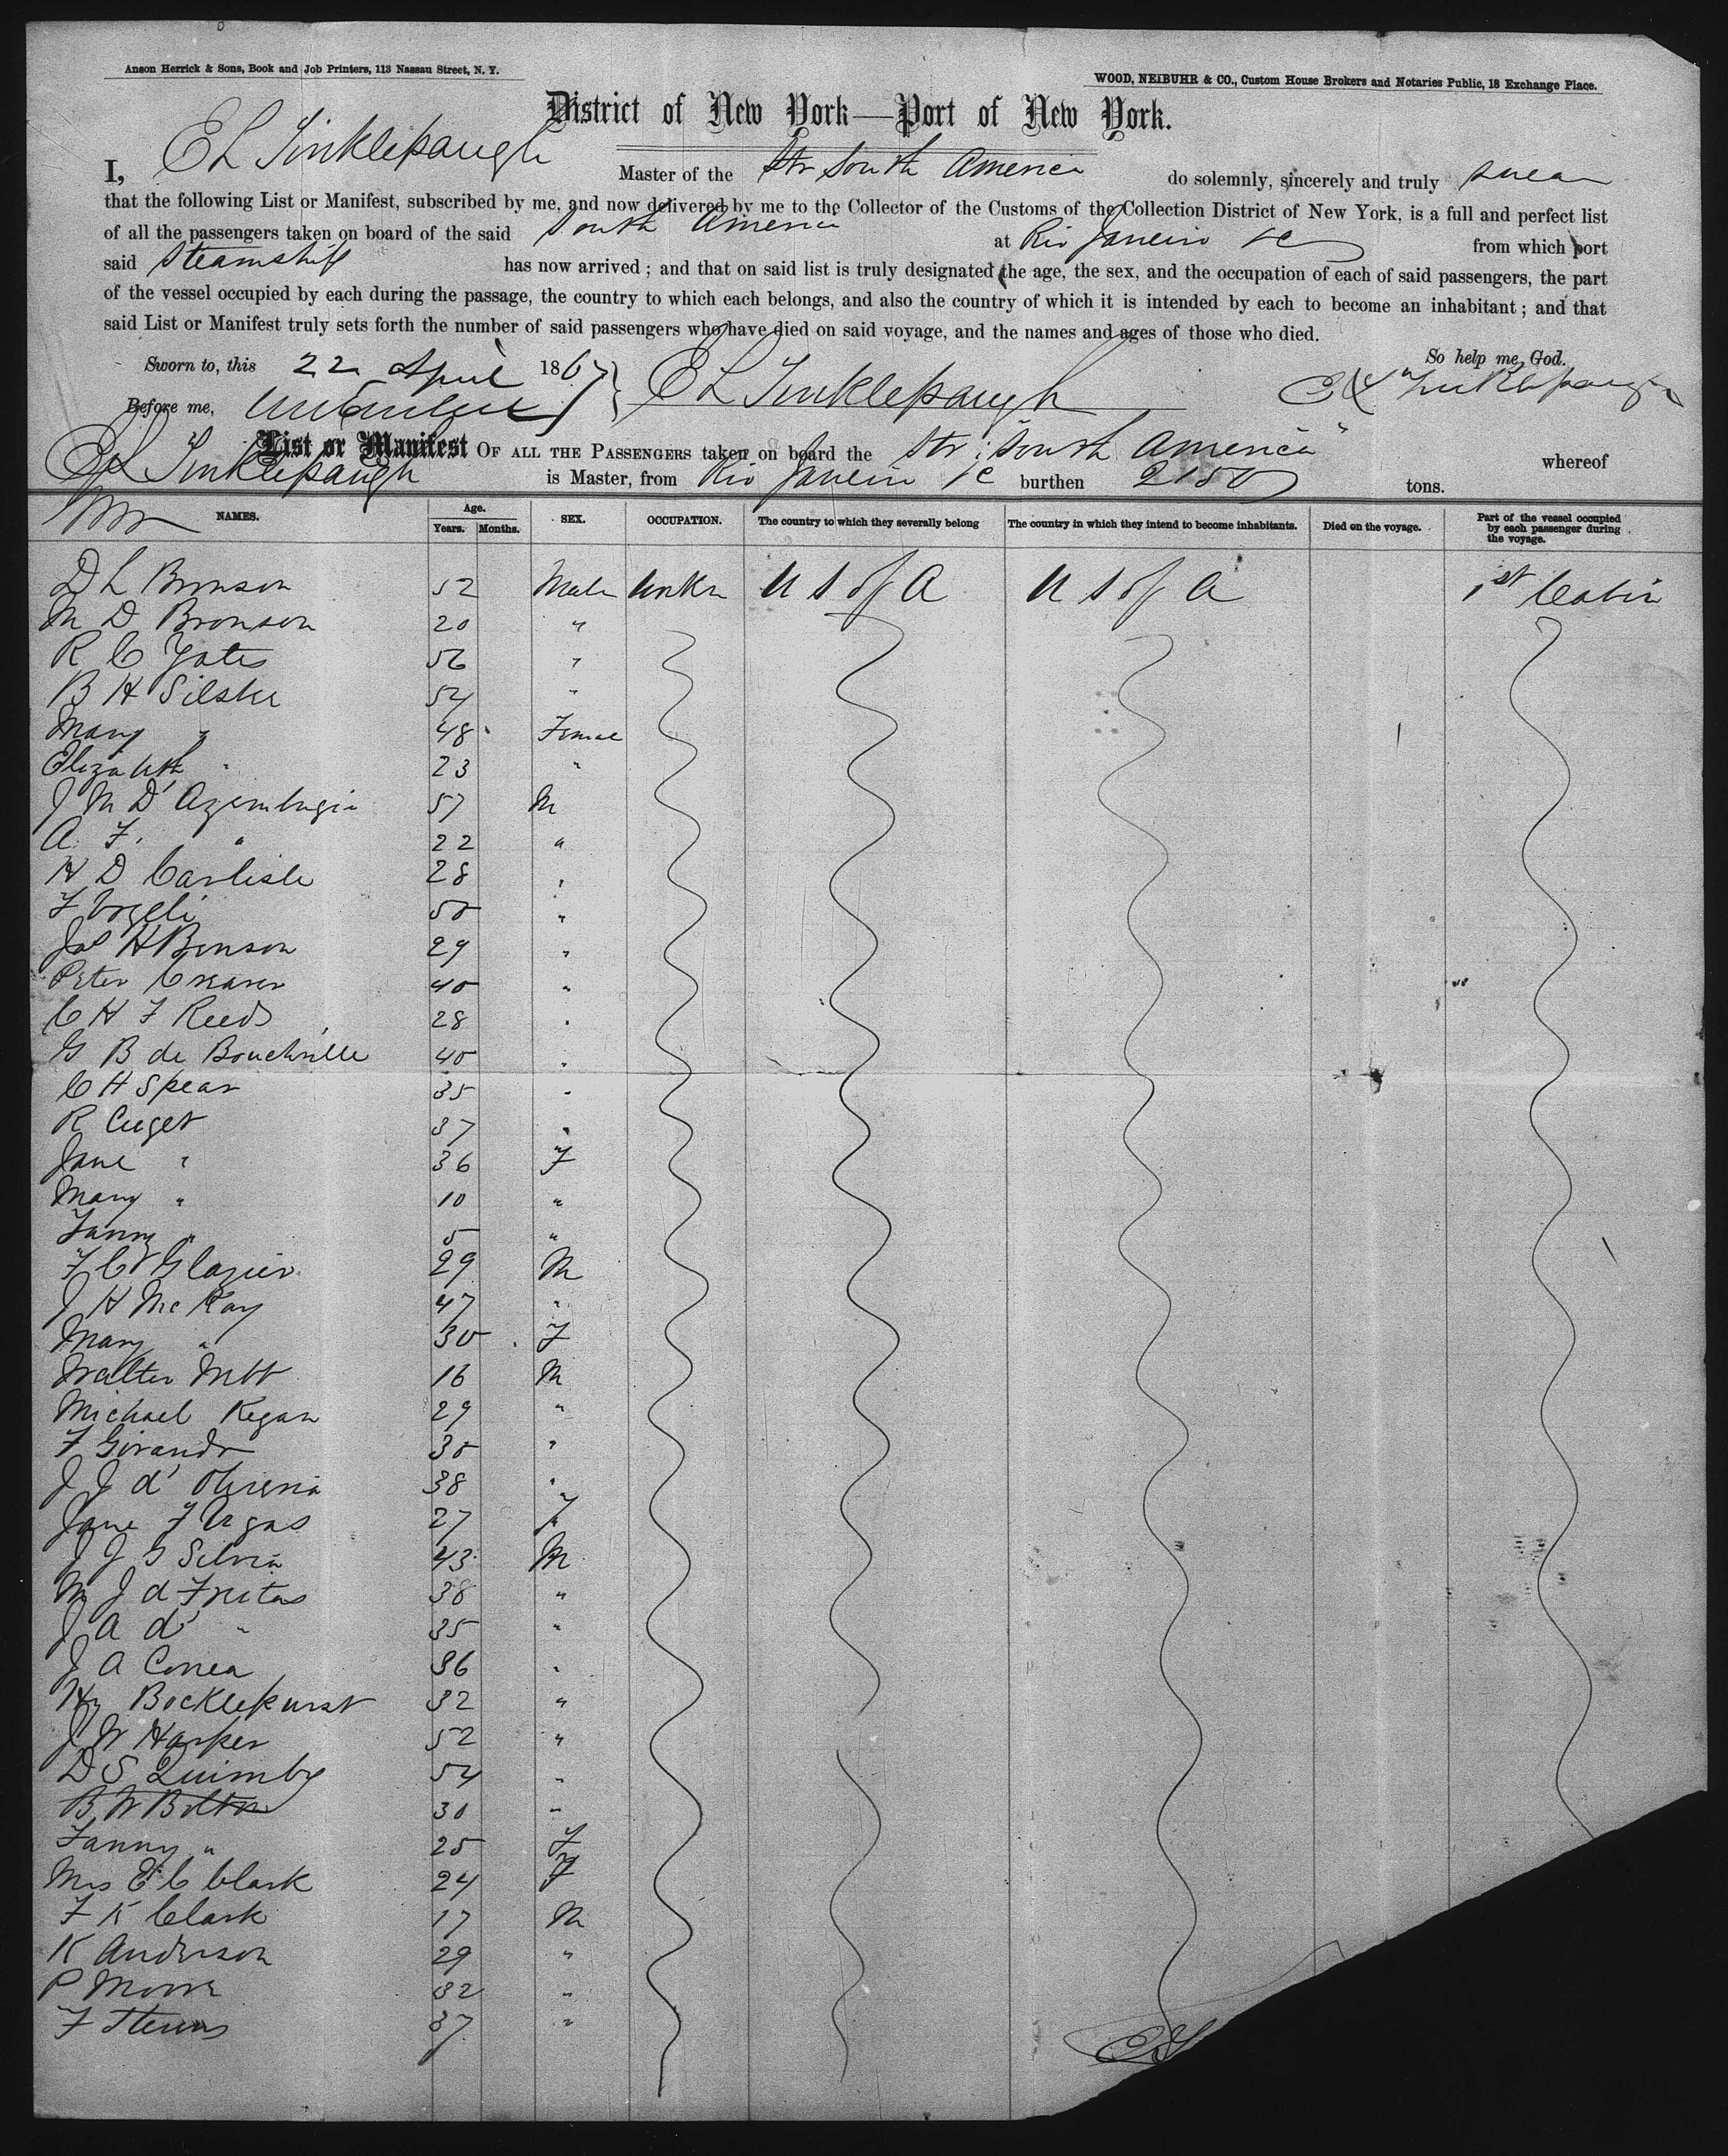 Anson Herrick & Sons, Book and Job Printers, 113 Nassau Street, N. Y.
WOOD, NEIBUHR & CO., Custom House Brokers and Notaries Public, 18 Exchange Place.
District of New York—Port of New York.
I, E L Tinklepaugh Master of the Str South America do solemnly, sincerely and truly swear
that the following List or Manifest, subscribed by me, and now delivered by me to the Collector of the Customs of the Collection District of New York, is a full and perfect list
of all the passengers taken on board of the said South America at Rio Janeiro &c from which port
said Steamship has now arrived ; and that on said list is truly designated the age, the sex, and the occupation of each of said passengers, the part
of the vessel occupied by each during the passage, the country to which each belongs, and also the country of which it is intended by each to become an inhabitant ; and that
said List or Manifest truly sets forth the number of said passengers who have died on said voyage, and the names and ages of those who died.
So help me, God.
Sworn to, this 22 April 1867 E L Tinklepaugh E L Tinklepaugh
Before me,
List or Manifest OF ALL THE PASSENGERS taken on board the Str "South America" whereof
E L Tinklepaugh is Master, from Rio Janeiro &c burthen 2150 tons.
NAMES. Age. Years. Months. SEX. OCCUPATION. The country to which they severally belong The country in which they intend to become inhabitants. Died on the voyage. Part of the vessel occupied by each passenger during the voyage.
D L Bronson 52 Male Unkn U S of A U S of A 1st Cabin
M D Bronson 20 "
R C Yates 56 "
B H Silsbee 54 "
Mary " 48 Female
Elizabeth " 23 "
J M D' 57 M
A F. " 22 "
H D Carlisle 28 "
F Vogeli 50 "
Jas H Benson 29 "
Peter 40 "
C H F Reeds 28 "
G B de Boucherville 40 "
C H Spear 35 "
R Cuget 37 "
Jane " 36 F
Mary " 10 "
Fanny " 5 "
F C Glazier 29 M
J H McKay 47 "
Mary " 30 F
Walter 16 M
Michael Kegan 29 "
F Girando 30 "
J J d' Oliveria 38 "
Jane F 27 F
J J G Silvia 43 M
M J d Freitas 38 "
J A d' " 35 "
J A Correa 36 "
Hy Bocklehurst 32 "
J W Harper 52 "
D S Quimby 54 "
B W Bolton 30 "
Fanny " 25 F
Mrs E C Clark 24 F
F K Clark 17 M
K Anderson 29 "
P Moore 32 "
F 37 "